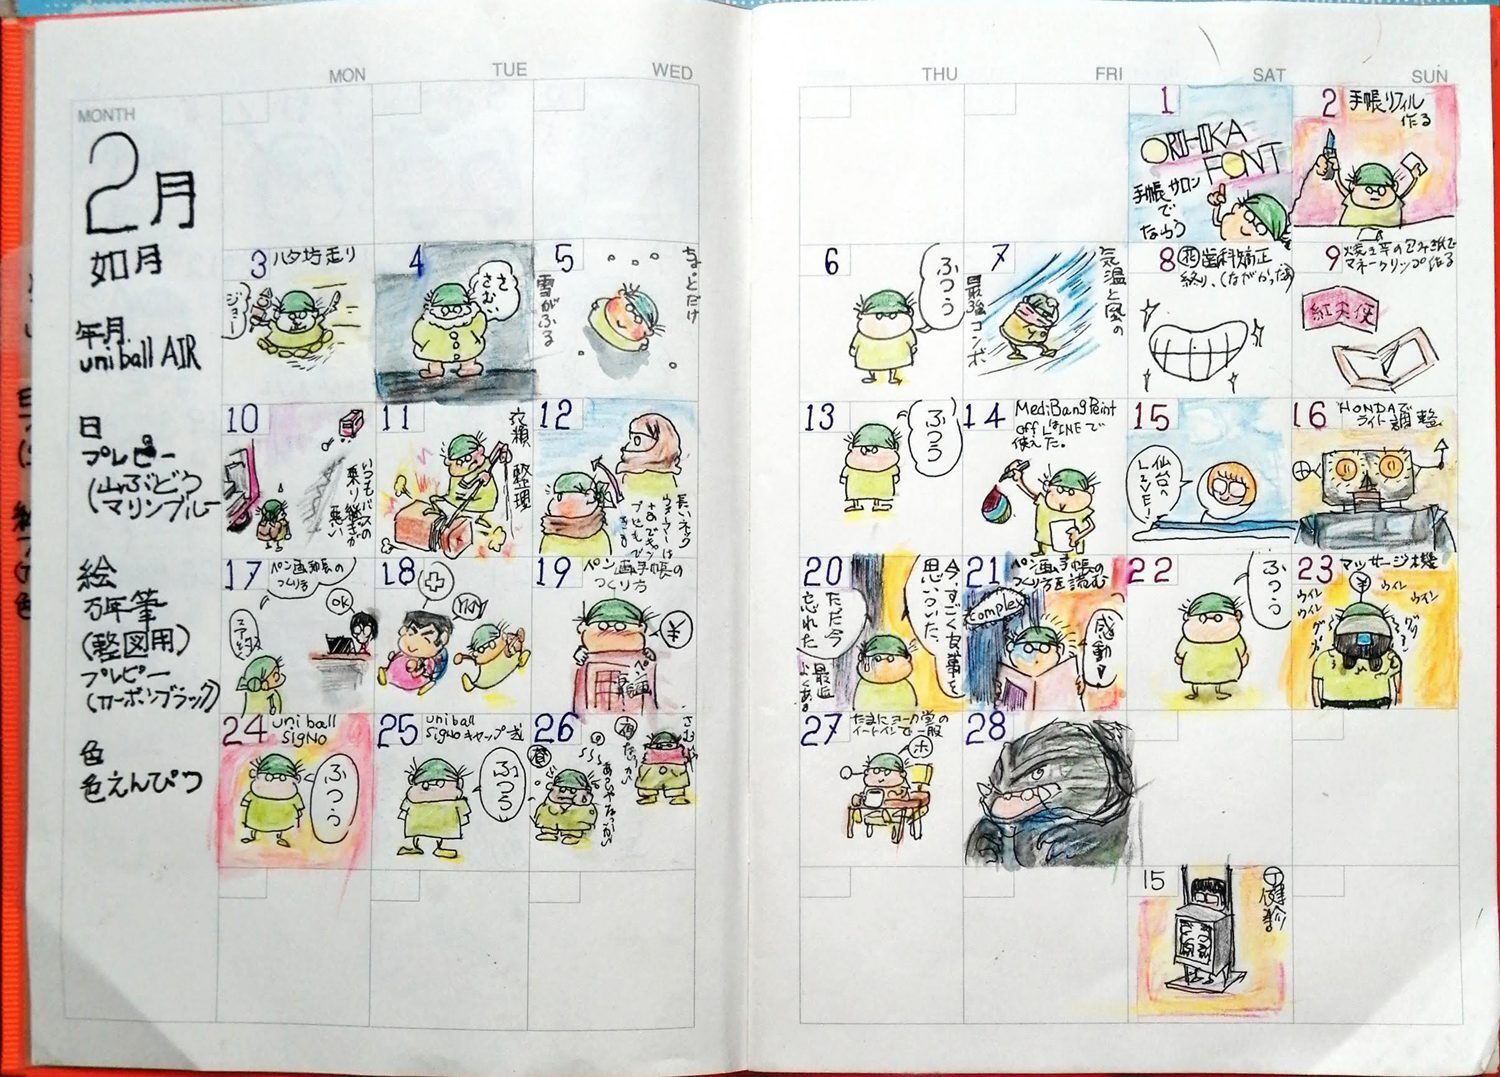 MON
TUE
WED
THU
FRI
SAT
SUN
MONTH
2月
如月
年月
uni ball AIR
日
プレピー
(山ぶどう
マリンブルー
絵
万年筆
(製図用)
プレピー
(カーボンブラック)
色
色えんぴつ
1
ORIHIKA
FONT
手帳サロン
で
ならう
2
手帳リフィル
作る
3
ハタ坊走り
ジョー
4
さ
さむい
5
ちょとだけ
雪がふる
6
ふつう
7
気温と風の
最強コンボ
8
歯科矯正
終り、(ながかったぁ)
9
焼き芋の包み紙で
マネークリップ作る
紅天使
10
いつもバスの
乗り継ぎが
悪い
11
衣類整理
12
長いネック
ウォーマーは
13
ふつう
14
MediBang Paint
Off LINEで
使えた。
15
仙台へ
16
HONDAで
ライト調整
17
ペン画手帳の
つくり方
OK
18
19
ペン画手帳の
つくり方
¥
20
今、すごく大事を
思いついた、
ただ今
忘れた
最近
よくある
21
ペン画手帳の
つくり方を読む
complex
感動
22
ふつう
23
マッサージ機
¥
ウイン
ウイン
ウイン
24
uni ball
SigNo
ふつう
25
uni ball
SigNo キャップ式
ふつう
26
さむい
27
たまにヨーク堂の
イートインで一服
ホ
28
15
健診